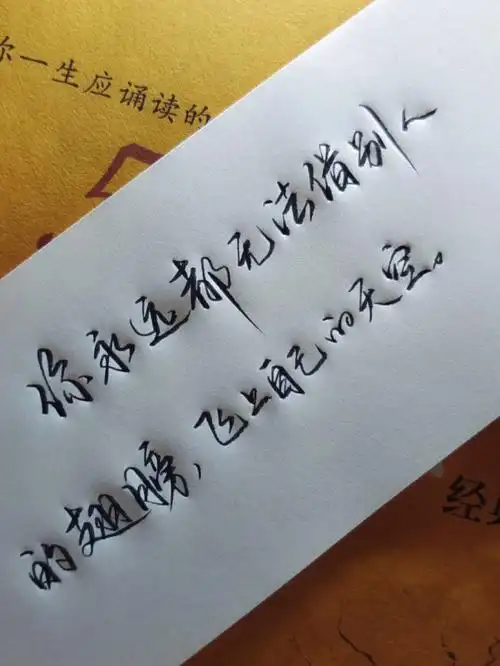 你一生应诵读的
你永远都无法借别人
的翅膀，飞上自己的天空。
经典